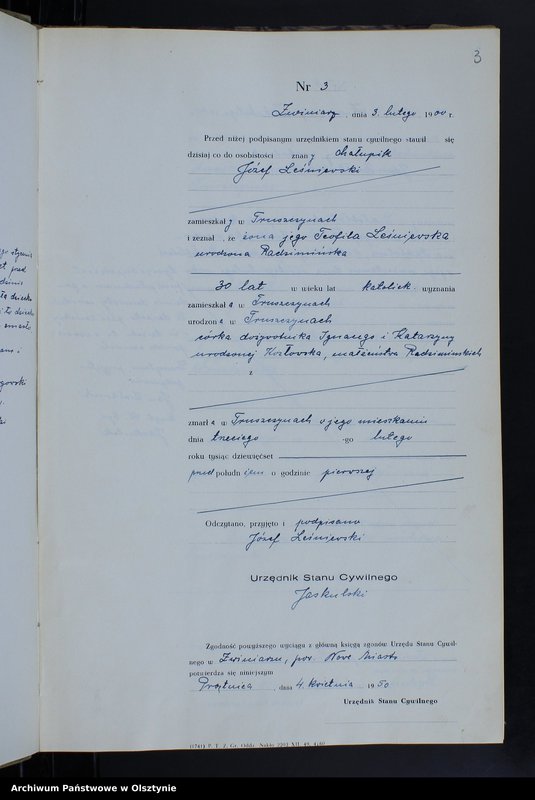 3
Nr 3
Zwiniarz, dnia 3. lutego 1900 r.
Przed niżej podpisanym urzędnikiem stanu cywilnego stawił się
dzisiaj co do osobistości znany chałupnik
Józef Leśniewski
zamieszkały w Truszczynach
i zeznał, że żona jego Teofila Leśniewska
urodzona Radzimińska
30 lat w wieku lat katolick. wyznania
zamieszkała w Truszczynach
urodzona w Truszczynach
córka dożywotnika Ignacego i Katarzyny
urodzonej Kozłowska, małżeństwa Radzimińskich
z
zmarła w Truszczynach w jego mieszkaniu
dnia trzeciego -go lutego
roku tysiąc dziewięćset
przed południem o godzinie pierwszej
Odczytano, przyjęto i podpisano
Józef Leśniewski
Urzędnik Stanu Cywilnego
Jaskulski
Zgodność powyższego wyciągu z główną księgą zgonów Urzędu Stanu Cywil-
nego w Zwiniarzu, pow. Nowe Miasto
potwierdza się niniejszym
, dnia 4 kwietnia 1950
Urzędnik Stanu Cywilnego
Archiwum Państwowe w Olsztynie